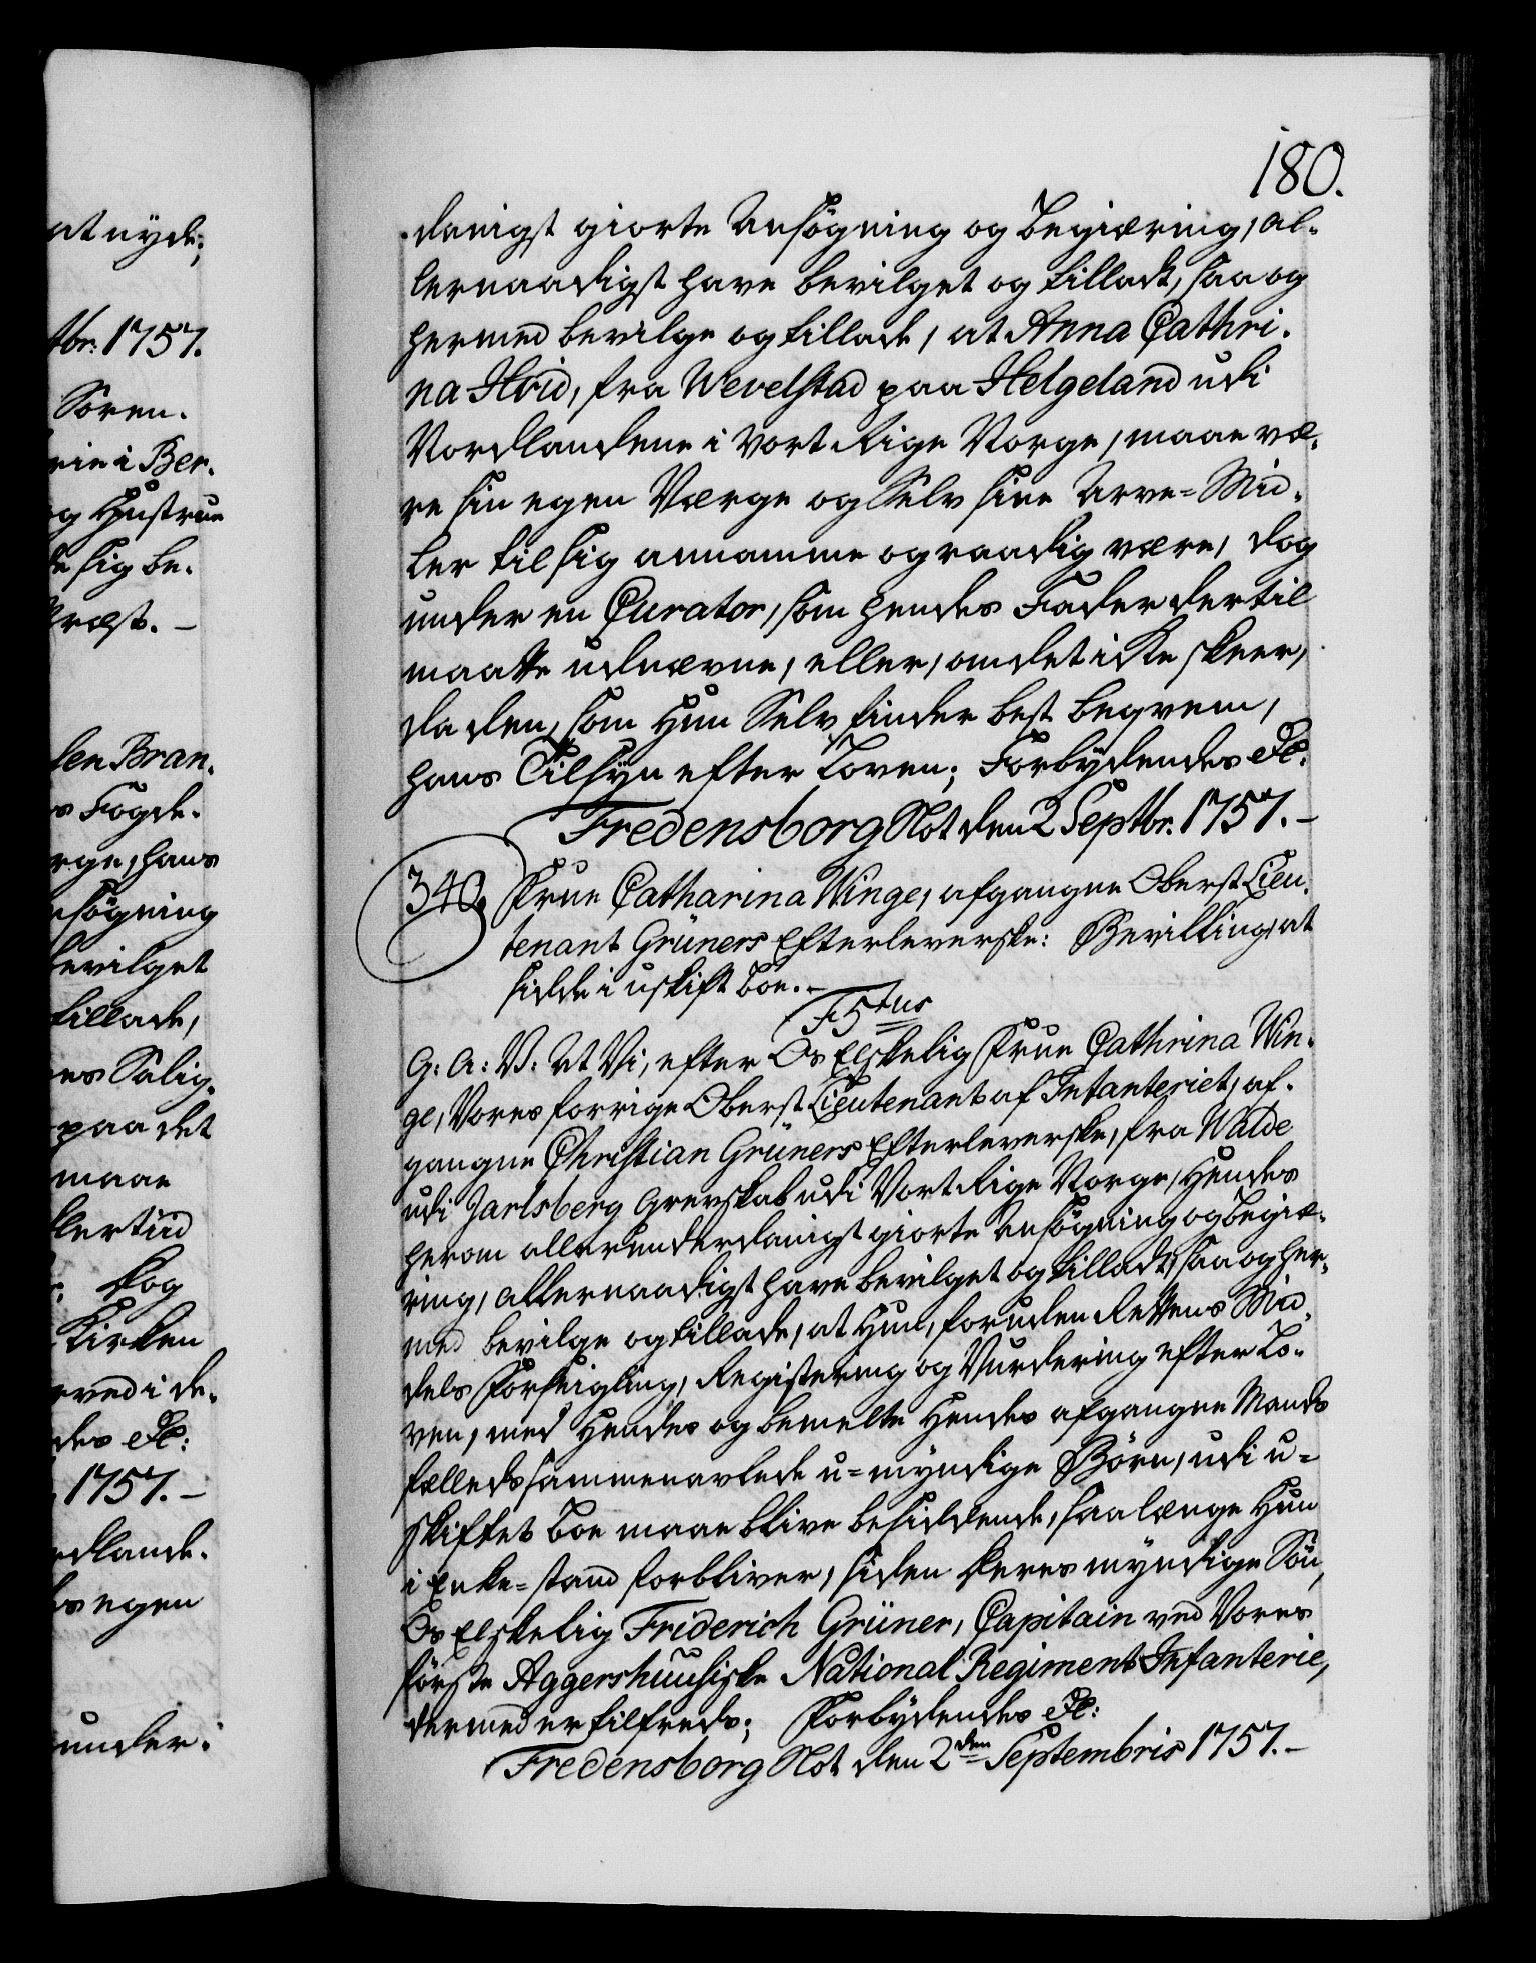 at nyde;
tbr: 1757.
Sören.
rie i Ber.
og Hustrue
de sig be.
Præst. –
sen Bran.
s Fogde.
rge, hans
nsögning
bevilget
tillade,
es Salig.
paa det
maae
lertiid
dog
Kirken
rved i de.
des etc:
1757. –
rdlande.
s egen
under.
180.
danigst giorte Ansögning og Begiæring, al-
lernaadigst have bevilget og tilladt, saa og
hermed bevilge og tillade, at Anna Cathri-
na Hvid, fra Wevelstad paa Helgeland udi
Nordlandene i Vort Rige Norge, maae væ-
re sin egen Værge og Selv sine Arve-Mid-
ler til sig annamme og raadig være, dog
under en Curator, som hendes Fader dertil
maatte udnævne, eller, om det icke skeer,
da den, som Hun Selv finder best beqvem,
hans Tilsyn efter Loven; Forbydendes etc.
Fredensborg Slot den 2 Septbr. 1757. –
340. Frue Catharina Winge, afgangne Oberst Lieu-
tenant Grüners Efterleverske: Bevilling, at
sidde i uskift Boe. –
F5tus
G: A: V: At Vi, efter Os Elskelig Frue Cathrina Win-
ge, Vores forrige Oberst Lieutenant af Infanteriet, af-
gangne Christian Grüners Efterleverske, fra Walde
udi Jarlsberg Grevskab udi Vort Rige Norge, Hendes
herom allerunderdanigst giorte Ansögning og Begiæ-
ring, allernaadigst have bevilget og tilladt, saa og her-
med bevilge og tillade, at Hun, foruden Rettens Mid-
dels Forseigling, Registering og Vurdering efter Lo-
ven, med Hendes og bemelte Hendes afgangne Mands
fælleds sammenavlede u-myndige Börn, udi u-
skiftet Boe maae blive besiddende, saalænge Hun
i Enke-stand forbliver, siden deres myndige Sön,
Os Elskelig Friderich Grüner, Capitain ved Vores
förste Aggershuusiske National Regiment Infanterie,
dermed er tilfreds; Forbydendes etc:
Fredensborg Slot den 2den Septembris 1757. –